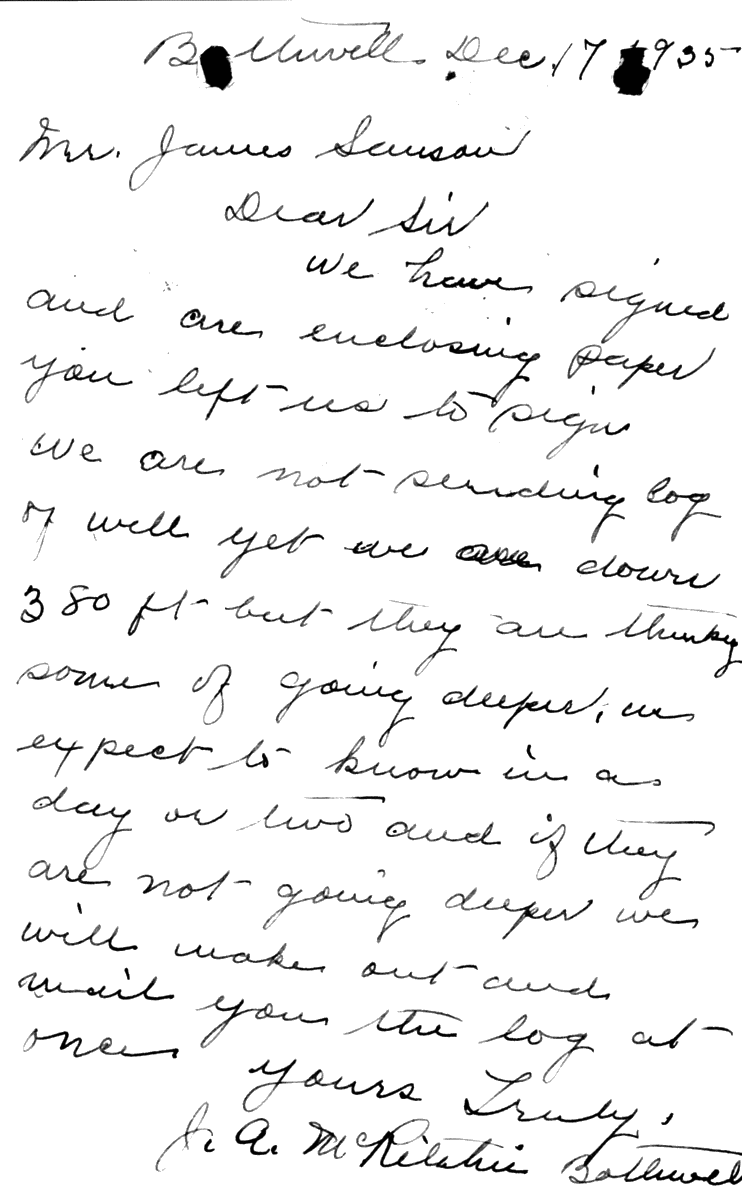 Bothwell Dec 17 1935
Mr. James Samson
Dear Sir
We have signed
and are enclosing paper
you left us to sign
We are not sending log
of well yet we are down
380 ft but they are thinking
some of going deeper, we
expect to know in a
day or two and if they
are not going deeper we
will make out and
mail you the log at
once
Yours Truly,
J. A. McRitchie Bothwell